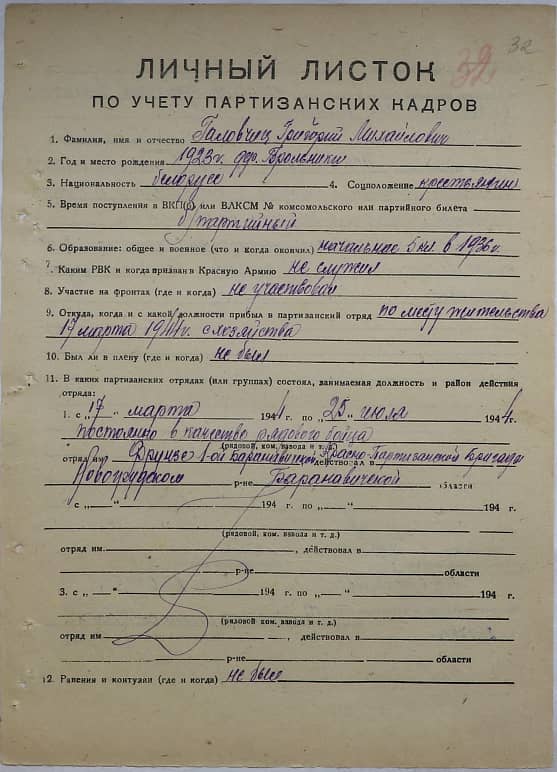 32
32
ЛИЧНЫЙ ЛИСТОК
ПО УЧЕТУ ПАРТИЗАНСКИХ КАДРОВ
1. Фамилия, имя и отчество Головчиц Григорий Михайлович
2. Год и место рождения 1923 г. дер.
3. Национальность белорус 4. Соцположение крестьянин
5. Время поступления в ВКП(б) или ВЛКСМ № комсомольского или партийного билета
б/партийный
6. Образование: общее и военное (что и когда окончил) начальное 5 кл в 1936 г.
7. Каким РВК и когда призван в Красную Армию не служил
8. Участие на фронтах (где и когда) не участвовал
9. Откуда, когда и с какой должности прибыл в партизанский отряд по месту жительства
17 марта 1944 г. с хозяйства
10. Был ли в плену (где и когда) не был
11. В каких партизанских отрядах (или группах) состоял, занимаемая должность и район действия
отряда:
1. с „17" марта 1944 г. по „25" июля 1944 г.
постоянно в качестве рядового бойца
(рядовой, ком. взвода и т. д.)
отряд им. 1-ой Барановичской, действовал в Красно-Партизанской бригаде
Новогрудском р-не Барановичской области
с „—" 194 г. по „—" 194 г.
(рядовой, ком. взвода и т. д.)
отряд им. , действовал в
р-не области
3. с „—" 194 г. по „—" 194 г.
(рядовой, ком. взвода и т. д.)
отряд им , действовал в
р-не области
12. Ранения и контузии (где и когда) не было